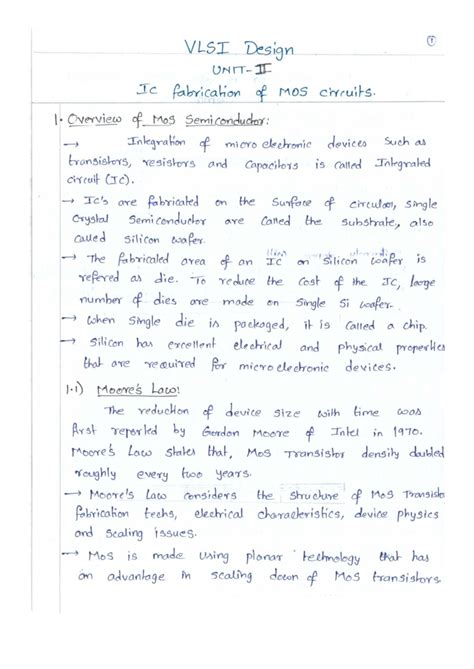 1
VLSI Design
UNIT-II
Ic fabrication of MOS circuits.
1. Overview of MOS Semiconductor:
→ Integration of micro electronic devices such as
transistors, resistors and Capacitors is called Integrated
circuit (Ic).
→ Ic's are fabricated on the Surface of circular, single
Crystal Semiconductor are Called the substrate, also
called silicon wafer.
→ The fabricated area of an Ic on silicon wafer is
refered as die. To reduce the cost of the Ic, large
number of dies are made on Single Si wafer.
→ when single die is packaged, it is called a chip.
→ Silicon has excellent electrical and physical properties
that are required for microelectronic devices.
1.1) Moore's Law:
The reduction of device size with time was
first reported by Gordon Moore of Intel in 1970.
Moore's Law states that, MOS Transistor density doubled
roughly every two years.
→ Moore's Law considers the structure of MOS Transisto
fabrication techs, electrical characteristics, device physics
and scaling issues.
→ MOS is made using planar technology that has
an advantage in scaling down of MOS transistors